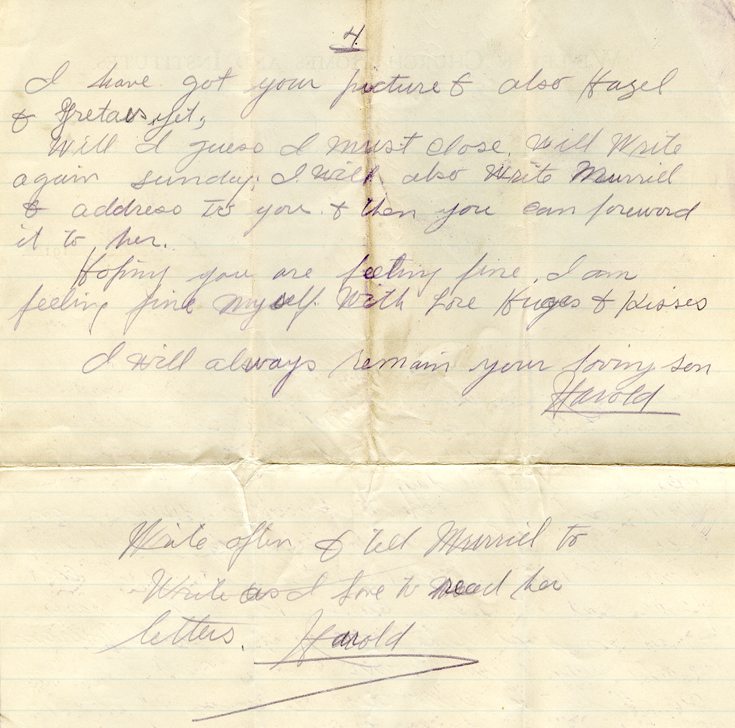 4.
I have got your picture & also Hazel
& Gretas yet,
Will I guess I must close. Will Write
again sunday. I will also Write Murriel
& address to you & then you can foreword
it to her.
Hoping you are feeling fine. I am
feeling fine myself. With Love Huges & Kisses
I will always remain your loving son
Harold
Write often & tell Murriel to
Write as I love to read her
letters. Harold